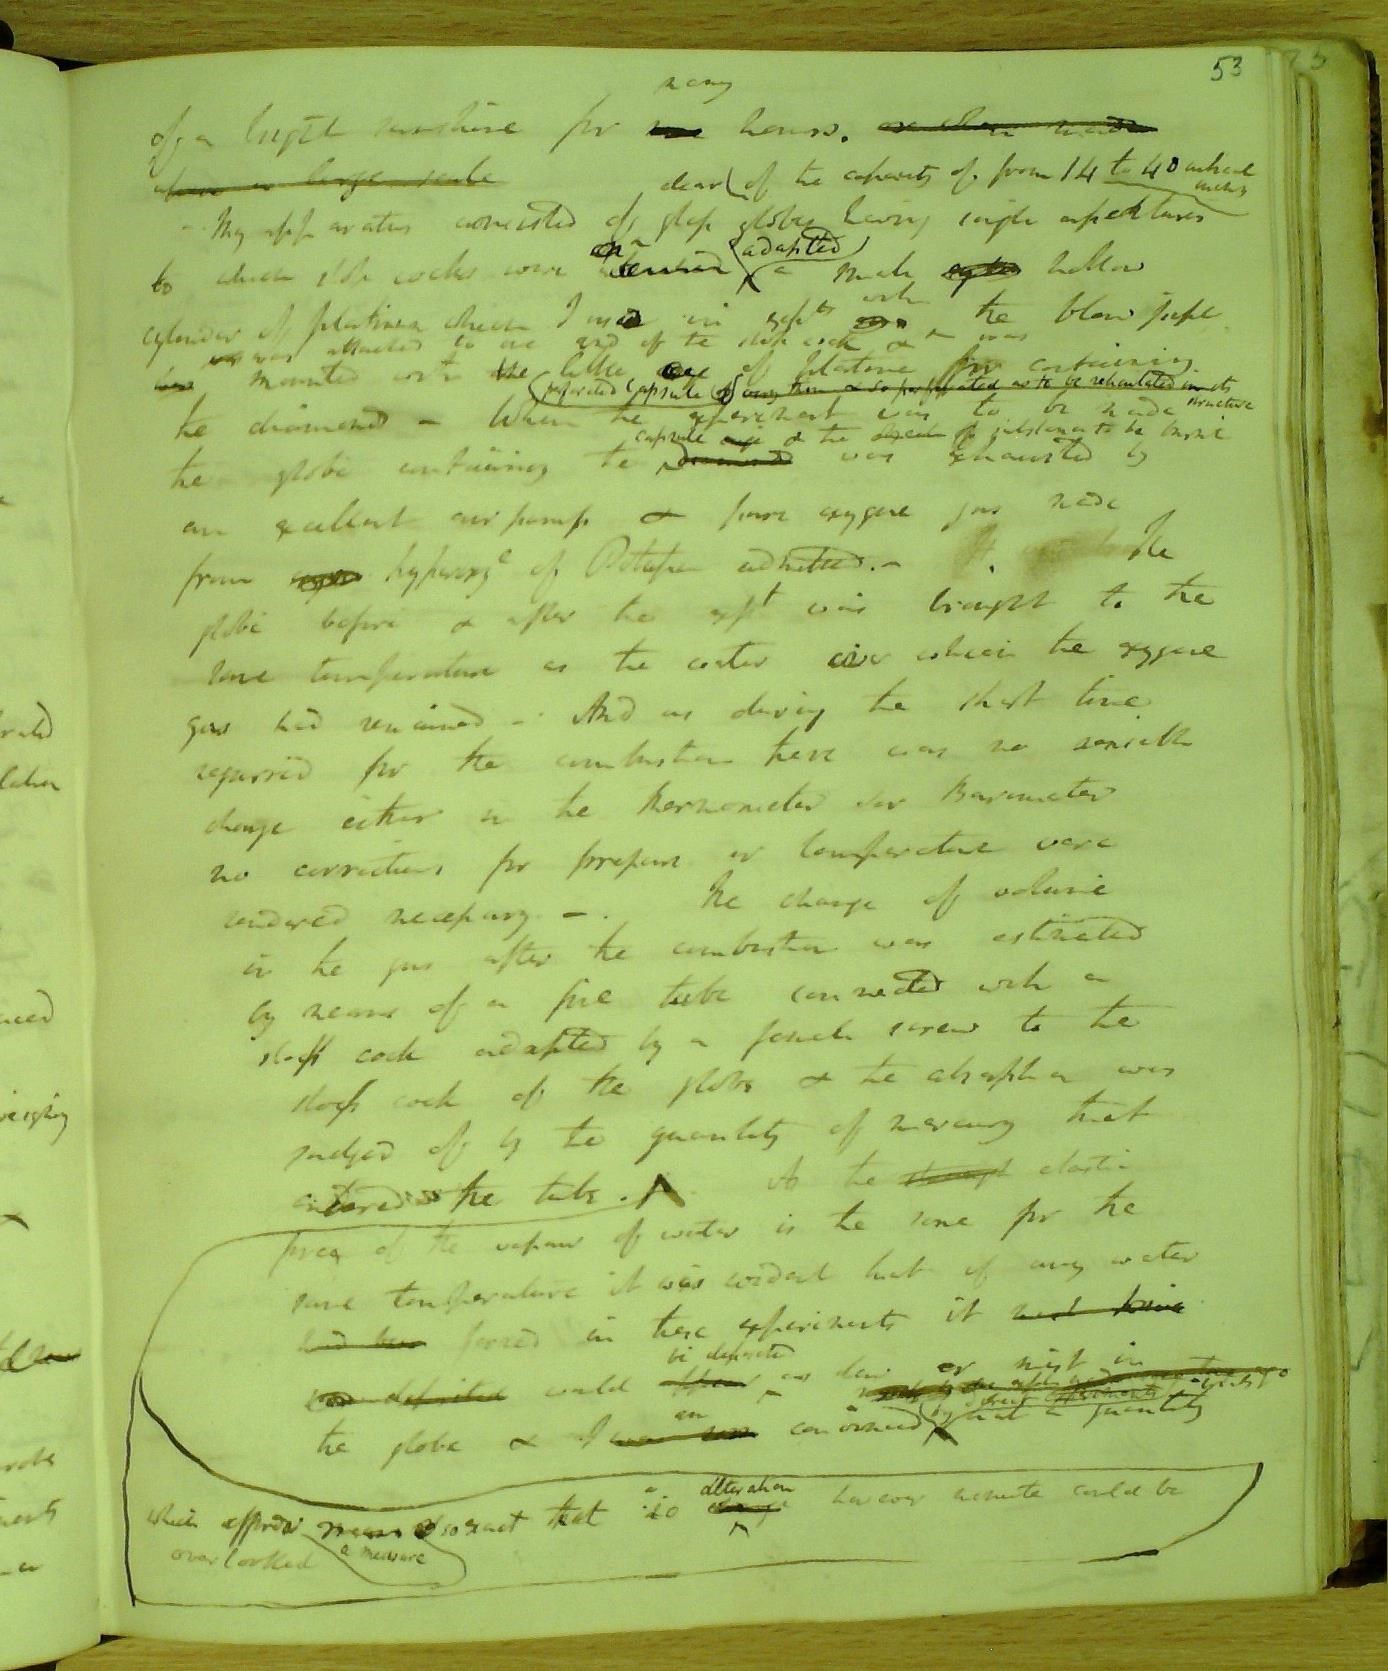 53
many
of a bright sunshine for hours.
clear of the capacity of from 14 to 40 cubical inches
My apparatus consisted of glass globes having single apertures
to which stop cocks were adapted a small hollow
cylinder of platinum which I used in expts with the blow pipe
was attached to one end of the stop cock & was
mounted with the little of Platina for containing
perforated capsule very thin & so perforated as to be reticulated in its structure
the diamond - When the experiment was to be made
capsule & the substance to be burnt
the globe containing the was exhausted by
an excellent air pump & pure oxygene gas made
from hyperoxye of Potassa admitted. - The
globe before & after the expt was brought to the
same temperature as the water over which the oxygene
gas had remained - And as during the short time
required for the combustion there was no sensible
change either in the thermometer nor Barometer
no corrections for pressure or temperature were
rendered necessary - . The change of volume
in the gas after the combustion was estimated
by means of a fine tube connected with a
stop cock adapted by a female screw to the
stop cock of the globe & the absorption was
judged of by the quantity of mercury that
entered the tube. As the strength elastic
force of the vapour of water is the same for the
same temperature it was evident that if any water
had been formed in these experiments it must have
been deposited would appear as dew or mist in
be deposited
the globe & I convinced that a quantity
which affords means so exact that no alteration however minute could be
overlooked a measure